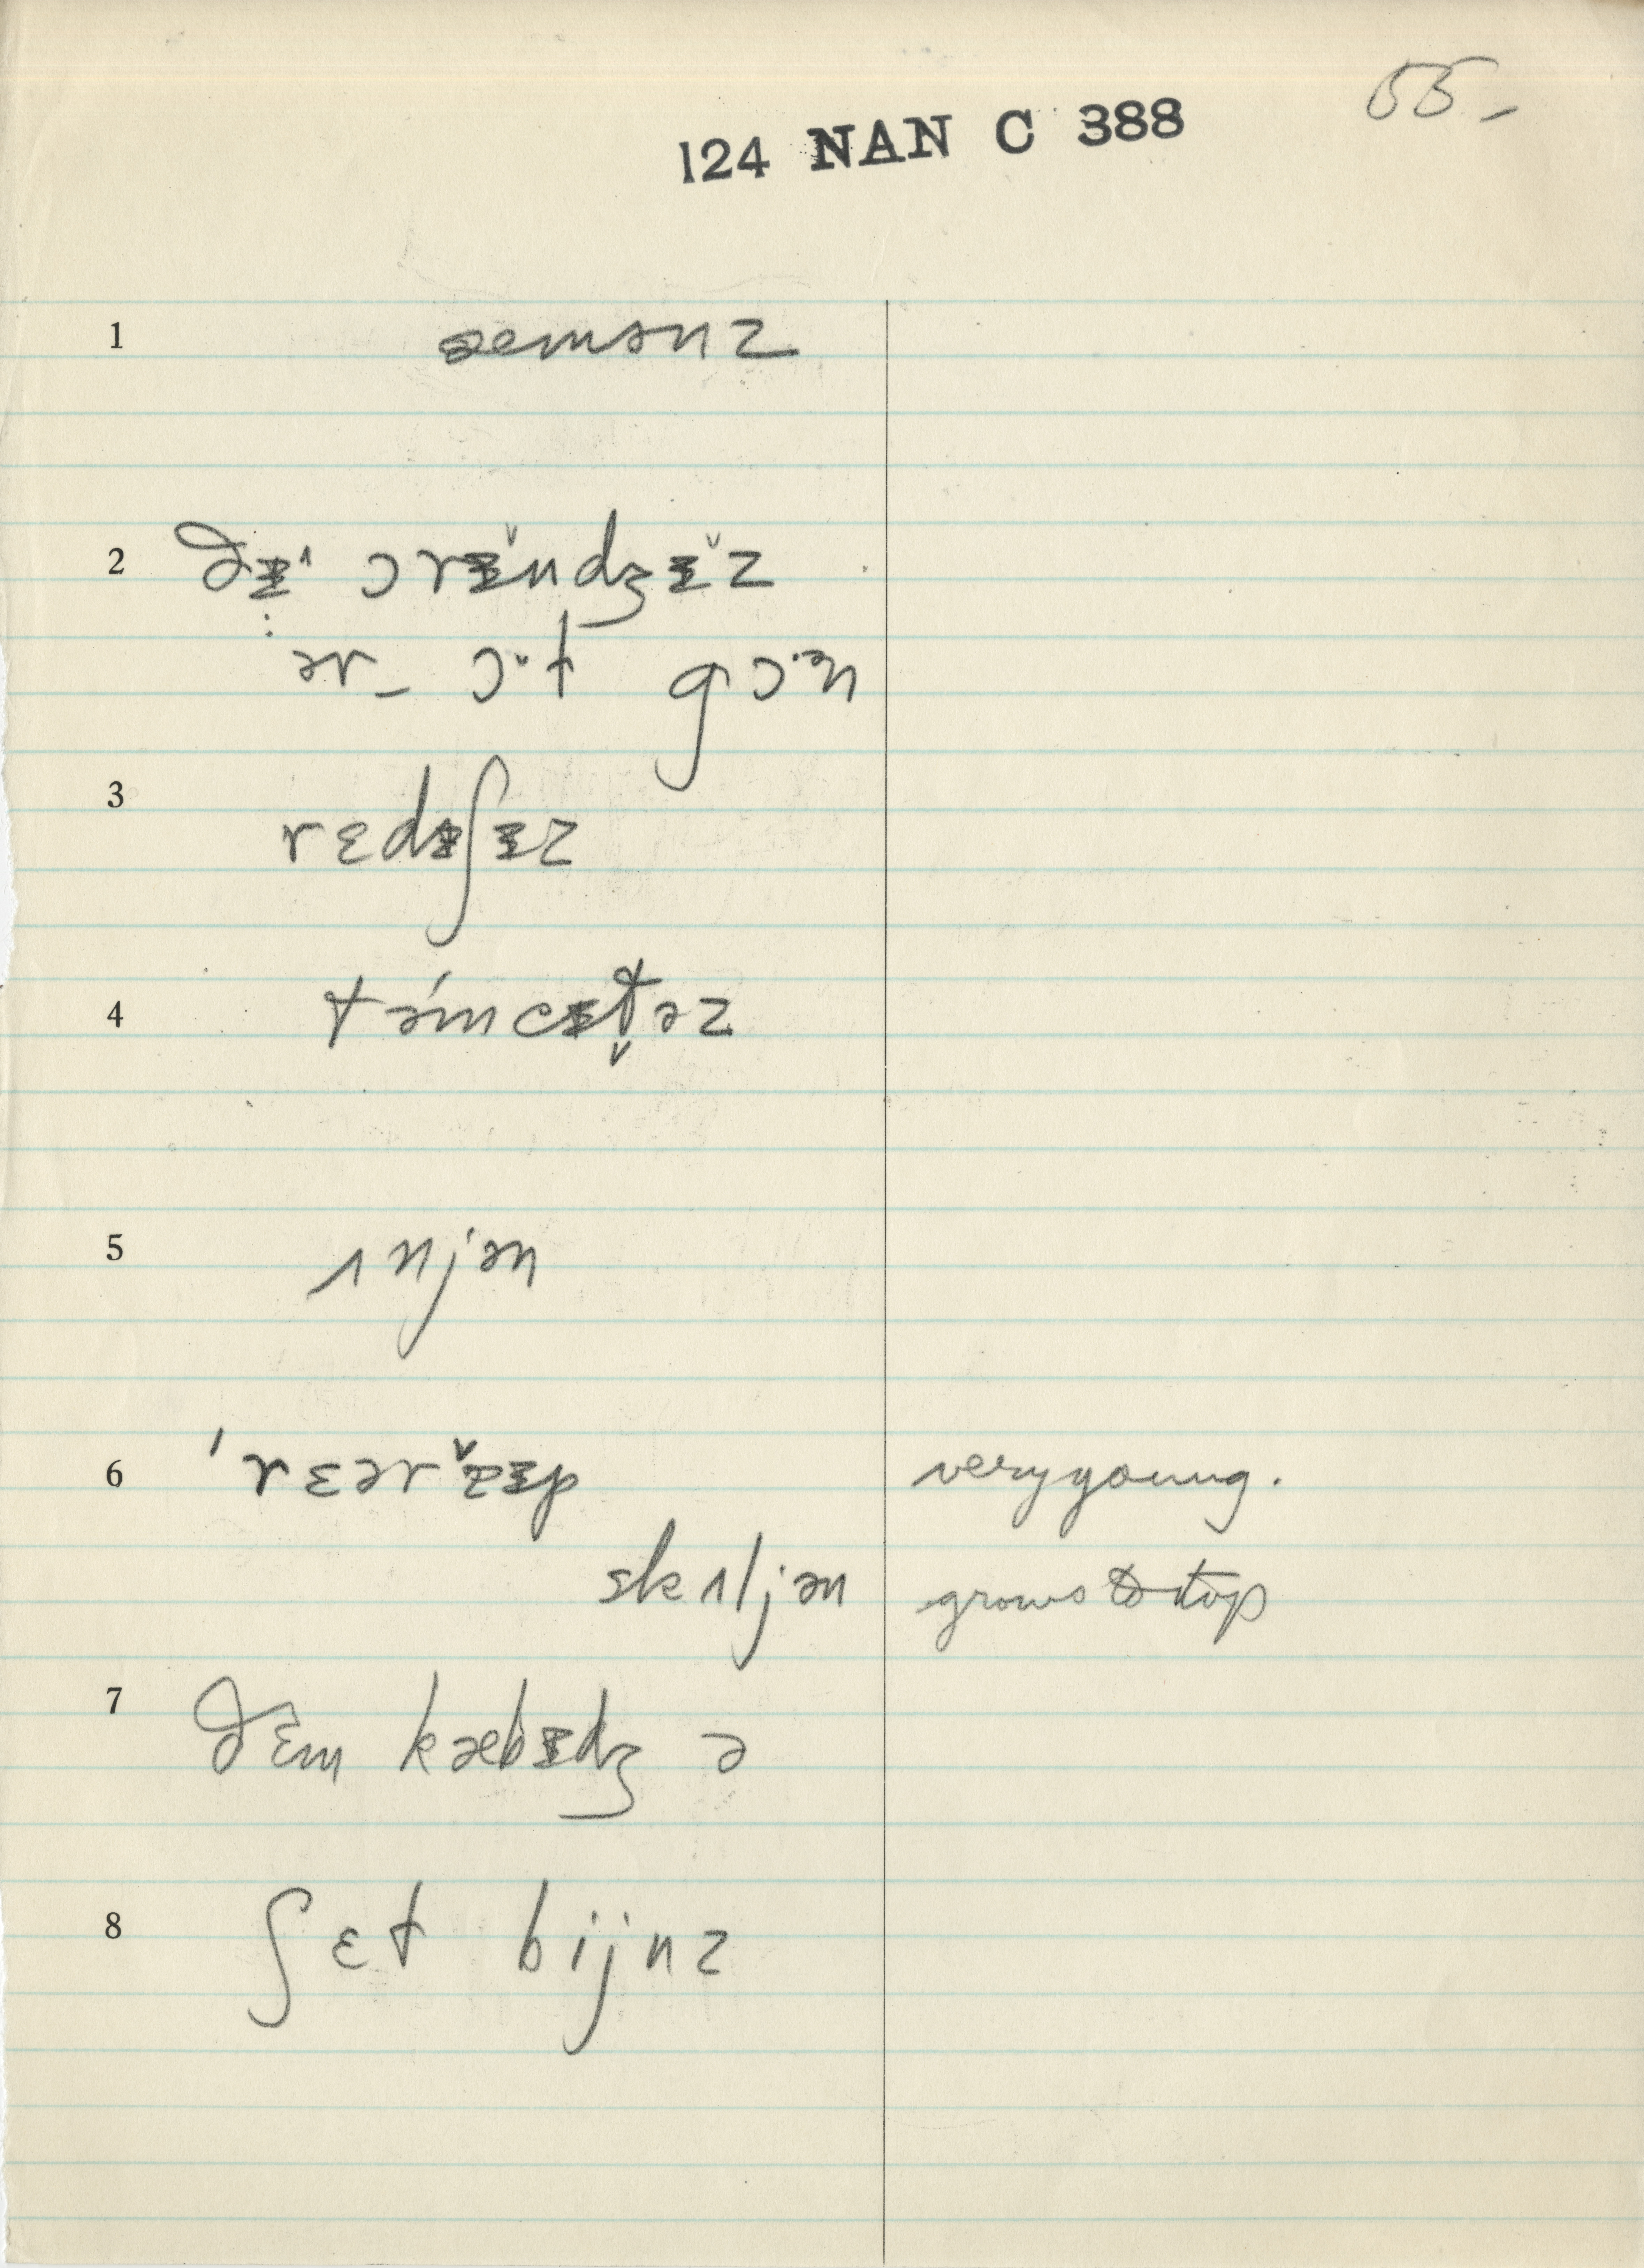 55-
124 NAN C 388
1 æmənz
2 ðɨ˄ ɔrɨ̌ndʒɨ̌z
ər_ ɔ·t gɔ·ən
3 rɛdɨʃɨz
4 təmént̬əz
5 ɪnjən
6 ˈrɛərɨp very young.
skɪljən grows to top
7 ðɛm kæbɨdʒ ə
8 ʃɛt bijnz